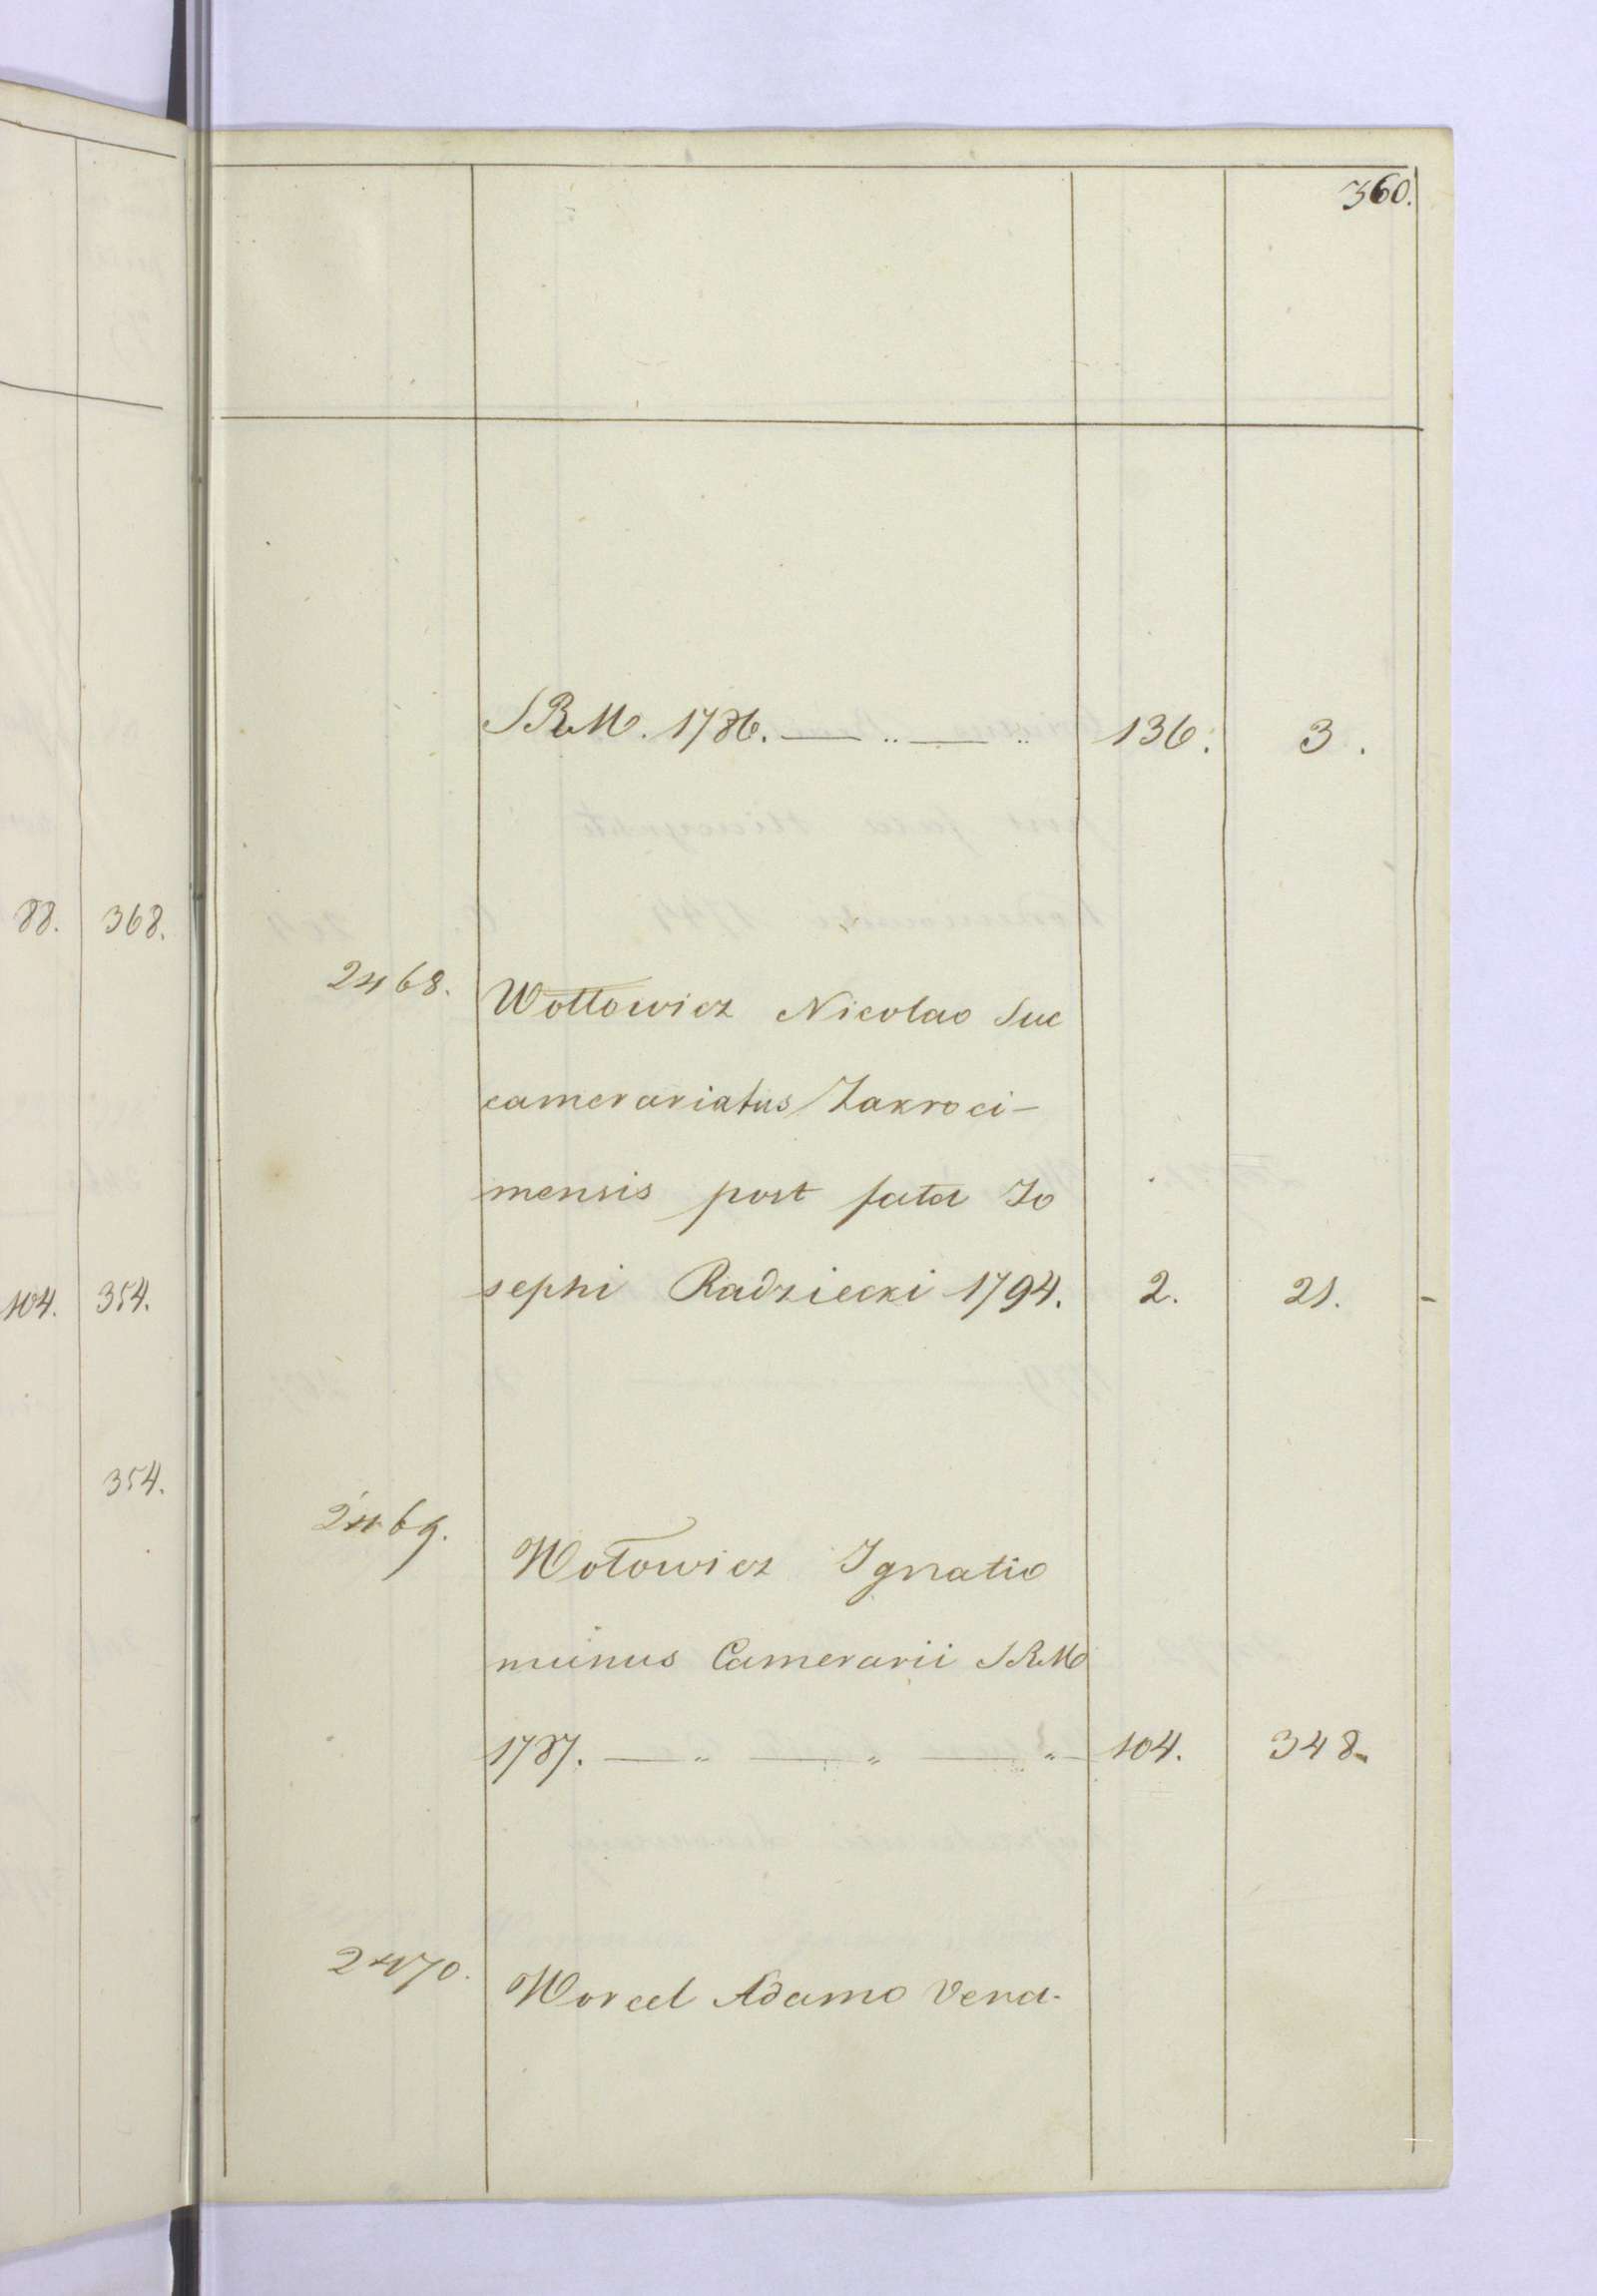 360.
S.R.M. 1786. — „ — „ 136. 3.
88. 368.
2468. Wołłowicz Nicolao Suc
camerariatus Zakroci-
mensis post fata Jo
sephi Radziecki 1794. 2. 21. -
104. 354.
354.
2469. Wołowicz Ignatio
munus Camerarii S.R.M
1787. — „ — „ — „ 104. 348.
2470. Worcel Adamo Vena-